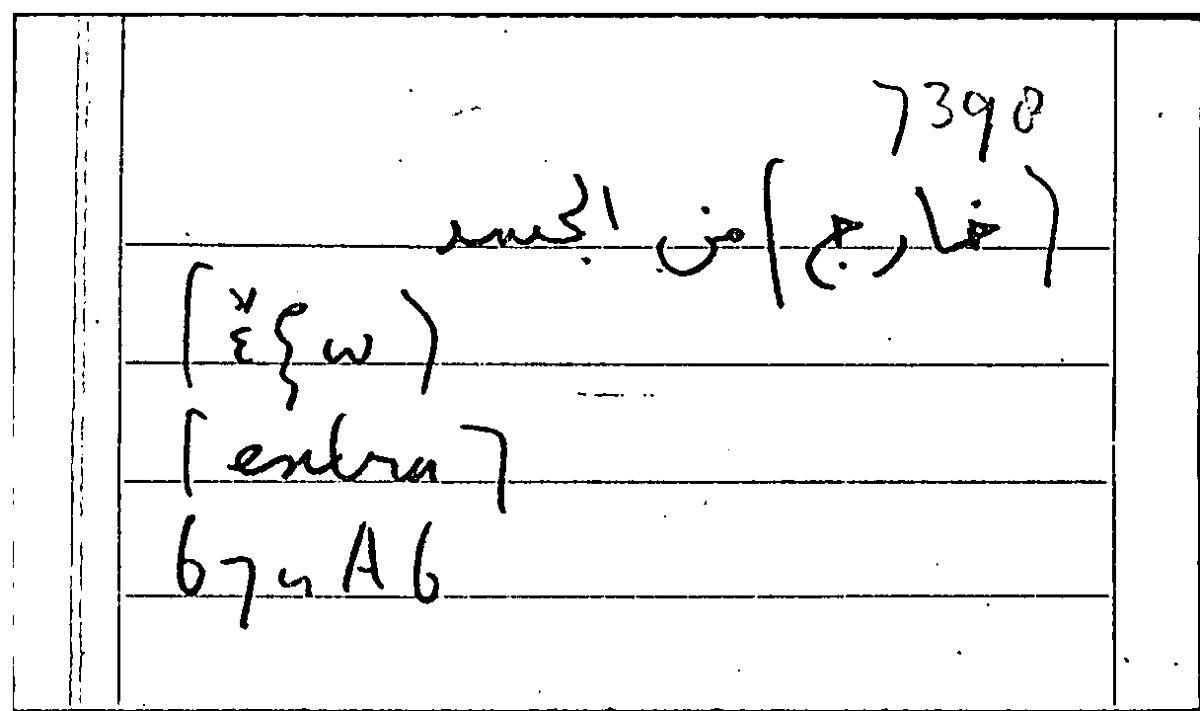 7390
(خارج) من الجسد
(ἔξω)
[extra]
67a A6